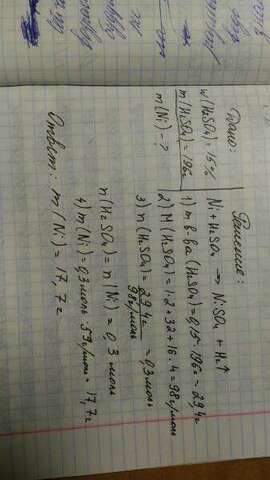 Дано:
w(H₂SO₄)=15%
m(H₂SO₄)=196г
m(Ni) - ?
Решение:
Ni + H₂SO₄ → NiSO₄ + H₂↑
1) m в-ва (H₂SO₄)=0,15·196г = 29,4г
2) M(H₂SO₄)=1·2+32+16·4=98г/моль
3) n(H₂SO₄)= 29,4г / 98г/моль = 0,3моль
n(H₂SO₄)=n(Ni)=0,3 моль
4) m(Ni)=0,3моль · 59г/моль = 17,7г
Ответ: m(Ni)=17,7г